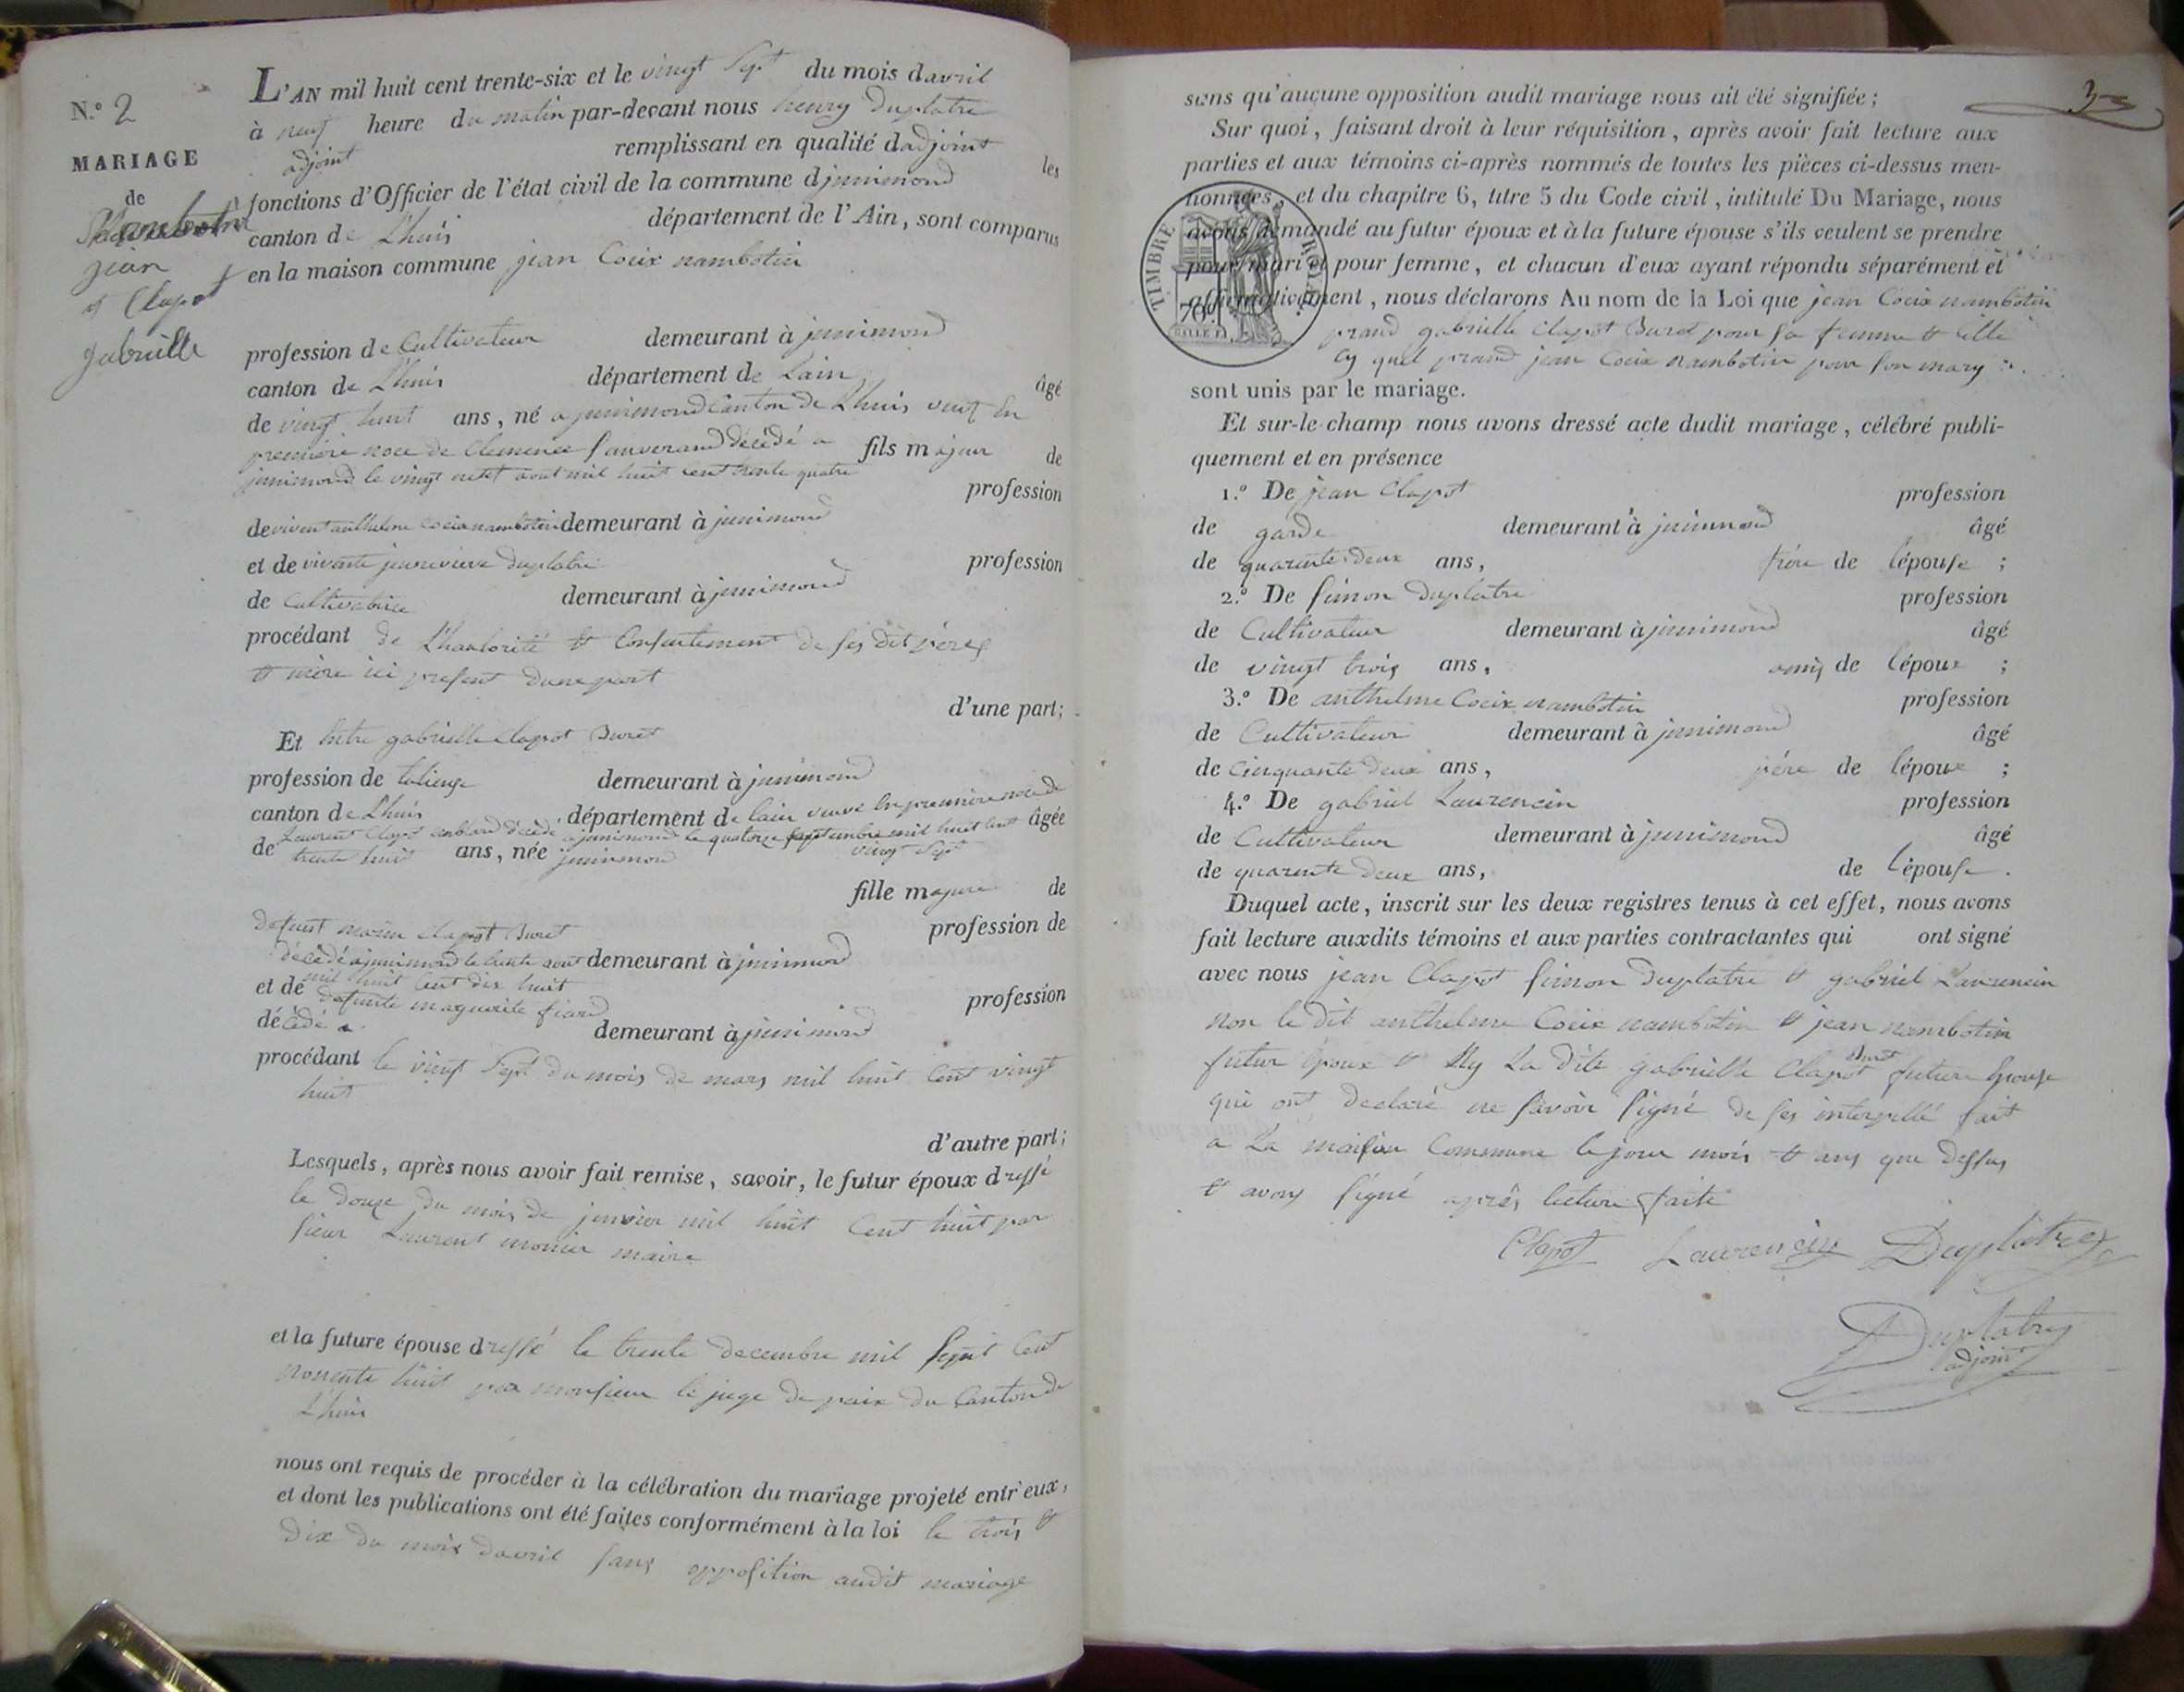 N.o 2
MARIAGE
de
nambotin
jean
et Clapot
gabrielle
L'AN mil huit cent trente-six et le vingt Sept du mois davril
à neuf heure du matin par-devant nous henry duplatre
adjoint remplissant en qualité dadjoint les
fonctions d'Officier de l'état civil de la commune djunimond
canton de Lhuis département de l'Ain, sont comparus
en la maison commune jean Cocix nambotin
profession de Cultivateur demeurant à junimond
canton de Lhuis département de Lain âgé
de vingt huit ans, né a junimond Canton de Lhuis veuf En
première noce de Clemence Sauverand décédé a fils majeur de
junimond le vingt aout mil huit cent trente quatre profession
de vivent anthelme Cocix nambotin demeurant à junimond
et de vivante jeunevieve duplatre profession
de Cultivatrice demeurant à junimond
procédant de Lhautorité et Consentement de ses dit père
et mère ici present dune part
d'une part;
Et Entre gabrielle Clapot Buret
profession de demeurant à junimond
canton de Lhuis département de lain veuve En première noce de
Laurent Clapot décédé a junimond le quatorze septembre mil huit cent âgée
de trente huit ans, née junimond vingt Sept
fille majeure de
defunt Clapot Buret profession de
décédé a junimond le trente aout demeurant à junimond
et de mil huit Cent dix huit
defunte marguerite fiard profession
décédé a demeurant à junimond
procédant le vingt Sept du mois de mars mil huit Cent vingt
huit
d'autre part;
Lesquels, après nous avoir fait remise, savoir, le futur époux dressé
le douze du mois de janvier mil huit Cent huit par
sieur Laurent monier maire
et la future épouse dressé le trente decembre mil Sept Cent
nonente huit par monsieur le juge de paix du Canton de
Lhuis
nous ont requis de procéder à la célébration du mariage projeté entr'eux,
et dont les publications ont été faites conformément à la loi le trois et
dix du mois davril sans opposition audit mariage
3
sans qu'aucune opposition audit mariage nous ait été signifiée;
Sur quoi, faisant droit à leur réquisition, après avoir fait lecture aux
parties et aux témoins ci-après nommés de toutes les pièces ci-dessus men-
tionnées, et du chapitre 6, titre 5 du Code civil, intitulé Du Mariage, nous
avons demandé au futur époux et à la future épouse s'ils veulent se prendre
pour mari et pour femme, et chacun d'eux ayant répondu séparément et
affirmativement, nous déclarons Au nom de la Loi que jean Cocix nambotin
prand gabrielle Clapot Buret pour sa femme et Elle
quel prand jean Cocix nambotin pour son mary
TIMBRE ROYAL
70
sont unis par le mariage.
Et sur-le-champ nous avons dressé acte dudit mariage, célébré publi-
quement et en présence
1.o De jean Clapot profession
de garde demeurant à junimond âgé
de quarante deux ans, frère de lépouse ;
2.o De simon duplatre profession
de Cultivateur demeurant à junimond âgé
de vingt trois ans, amis de lépoux ;
3.o De anthelme Cocix nambotin profession
de Cultivateur demeurant à junimond âgé
de Cinquante deux ans, père de lépoux ;
4.o De gabriel Laurencin profession
de Cultivateur demeurant à junimond âgé
de quarente deux ans, de lépouse .
Duquel acte, inscrit sur les deux registres tenus à cet effet, nous avons
fait lecture auxdits témoins et aux parties contractantes qui ont signé
avec nous jean Clapot simon duplatre et gabriel Laurencin
non le dit anthelme Cocix nambotin et jean nambotin
futur Epoux et Ny La dite gabrielle Clapot Buret future Epouse
qui ont declaré ne savoir signé de ses interpellé fait
a La maison Commune le jour mois et ans que dessus
et avons signé après lecture faite
Clapot Laurencin Duplatre
Duplatre
adjoint